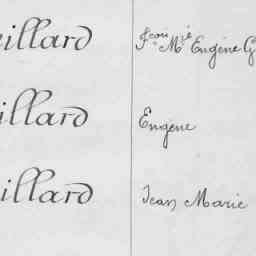 illard Jean Mie Eugène G
illard Eugène
illard Jean Marie